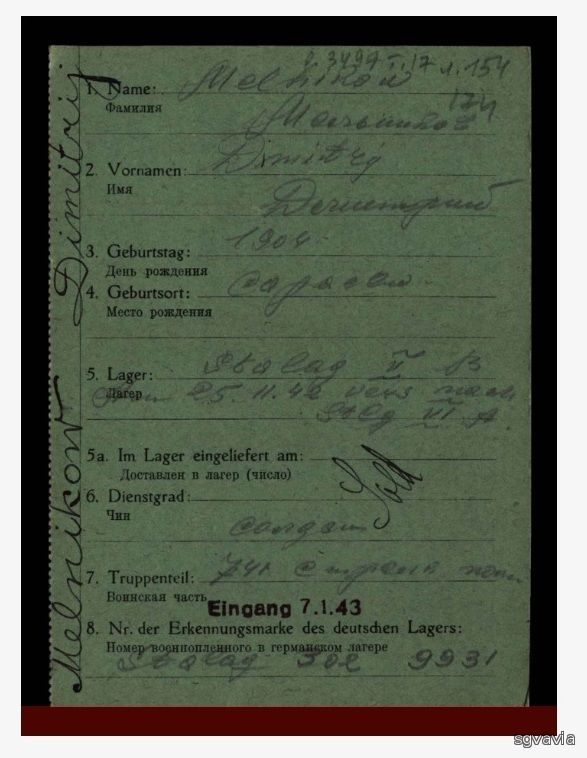 Melnikow Dimitrij
3497 I. 17 л. 154
1. Name: Melnikow
Фамилия
174
Мельников
2. Vornamen: Dmitrij
Имя
Демитрий
3. Geburtstag: 1904
День рождения
4. Geburtsort:
Место рождения
5. Lager: Stalag V B
Лагер
25. 11. 42 vers nach
Stlg VI A.
5a. Im Lager eingeliefert am:
Доставлен в лагер (число)
6. Dienstgrad: Sold
Чин
солдат
7. Truppenteil: 741
Воинская часть
Eingang 7.1.43
8. Nr. der Erkennungsmarke des deutschen Lagers:
Номер военнопленного в германском лагере
Stalag 302 9931
sgvavia